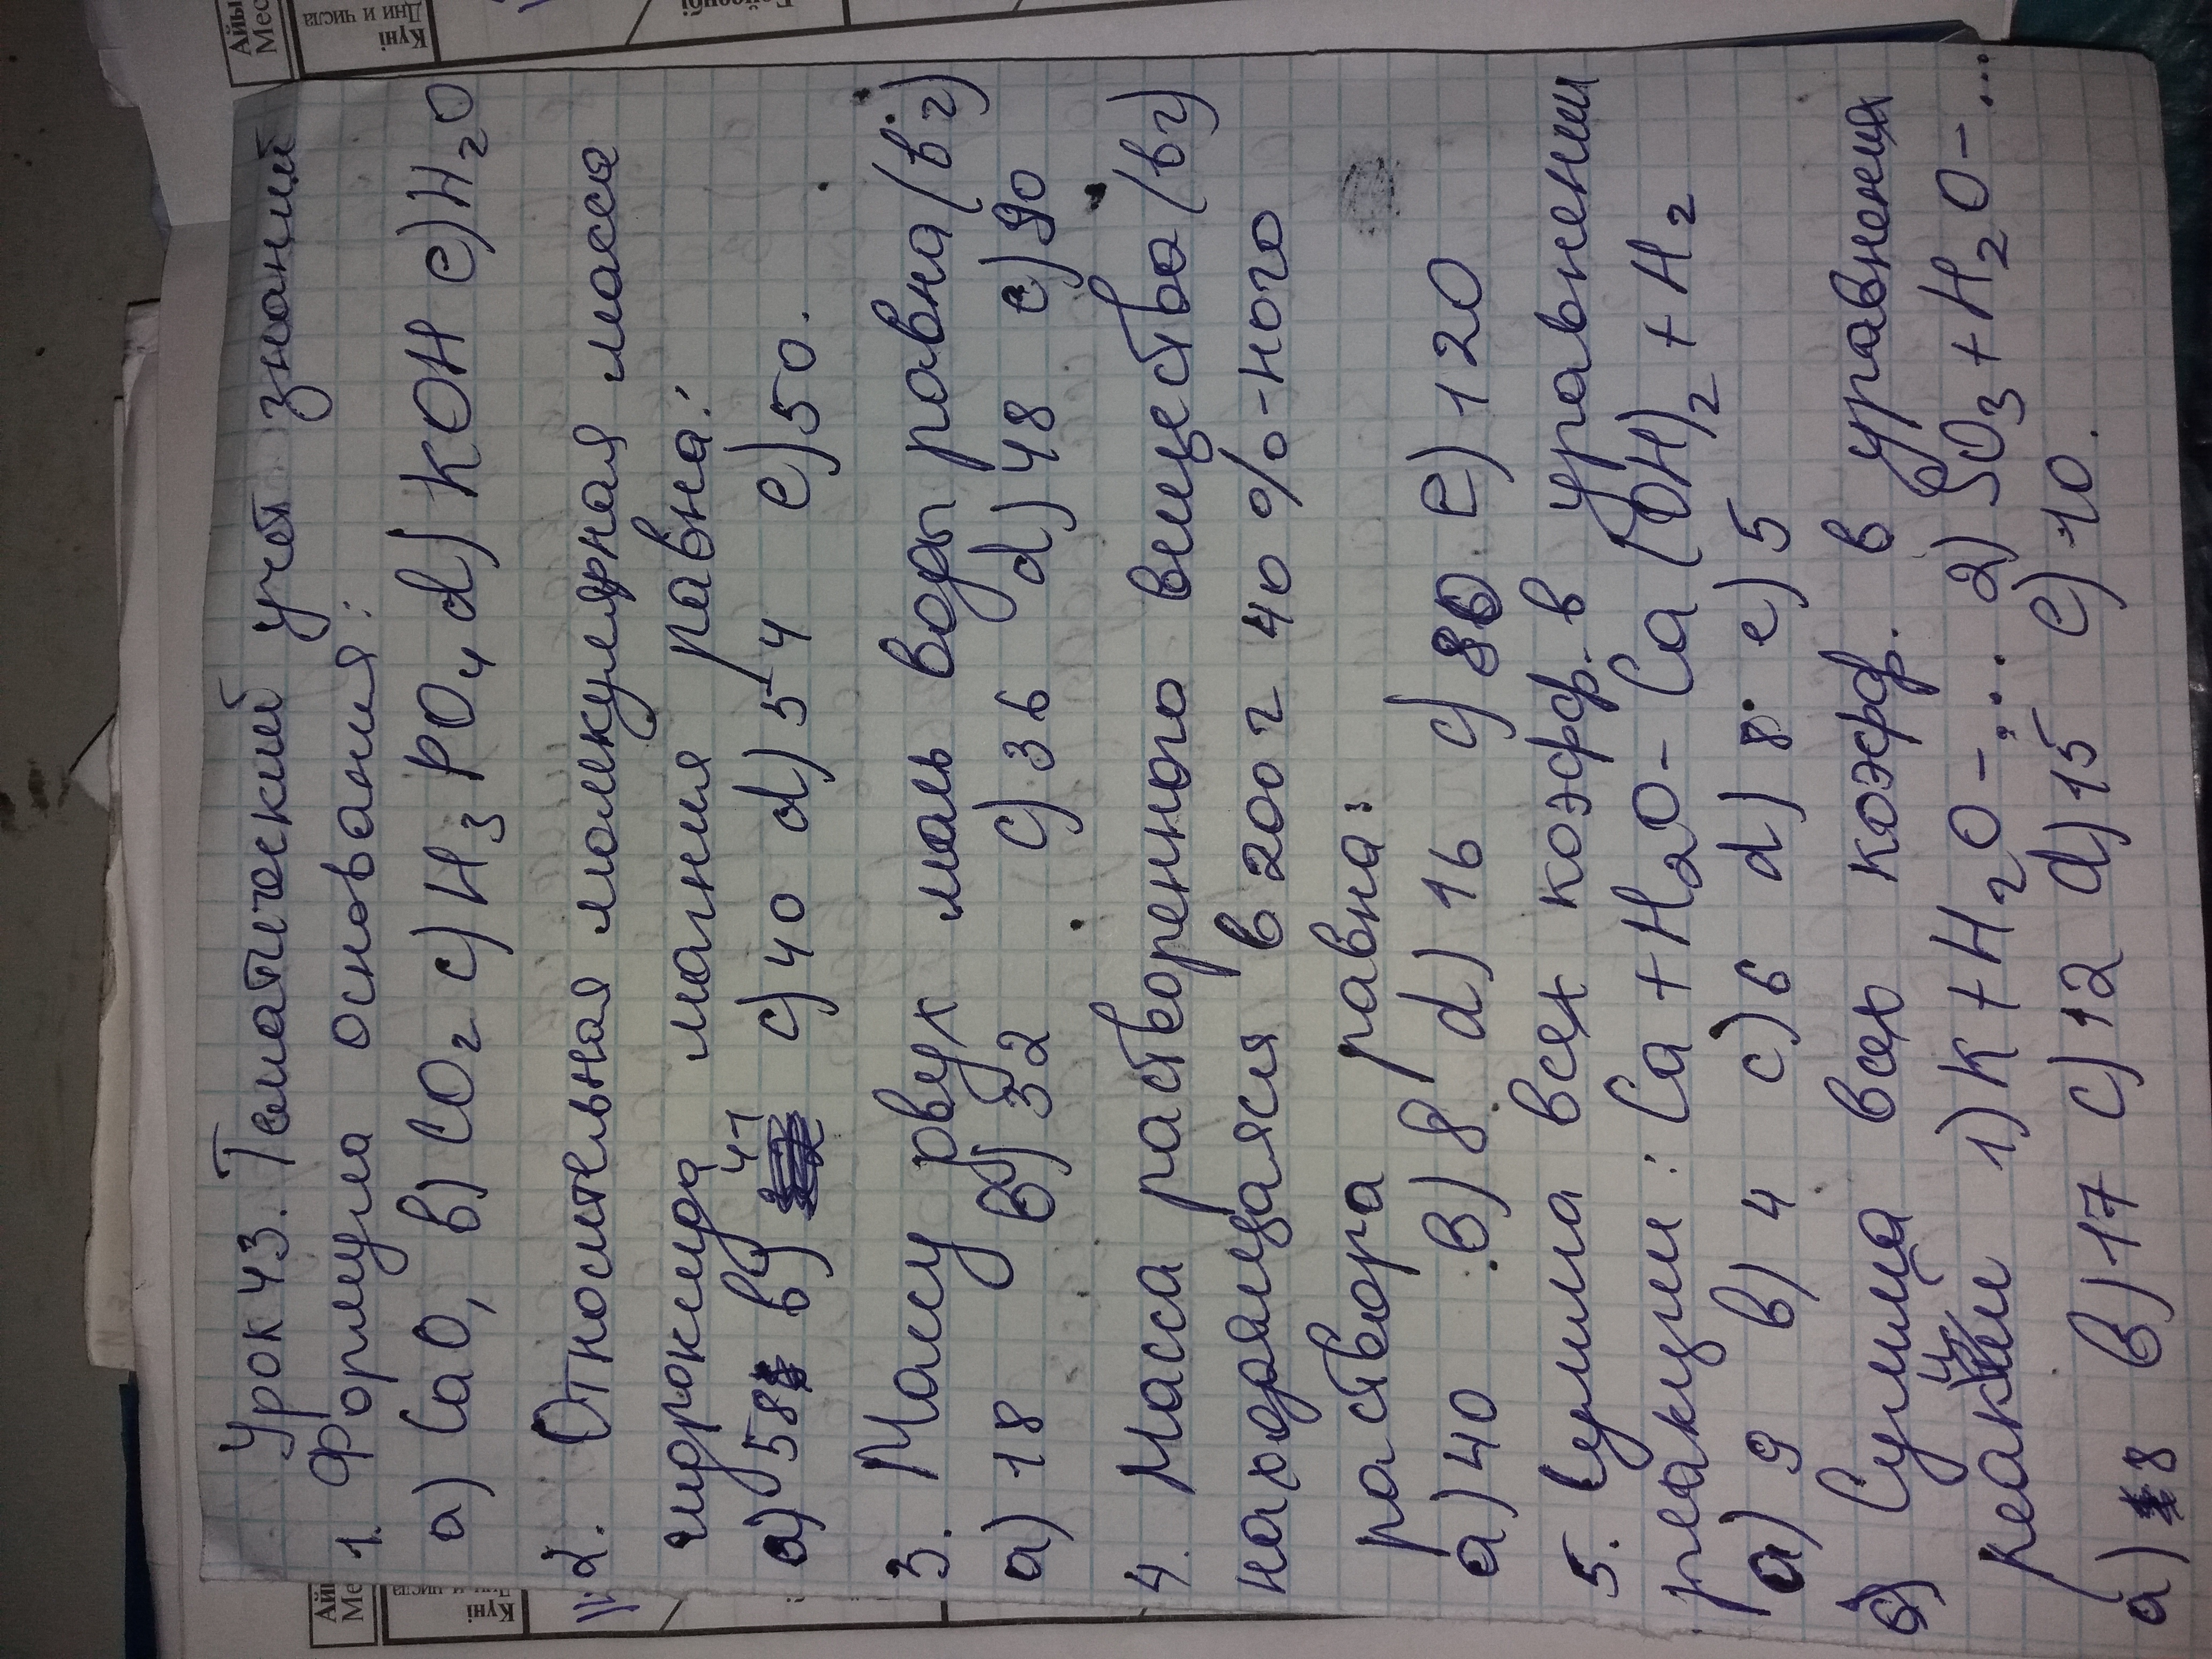 Урок 43. Тематический учёт знаний
1. Формула основания:
a) CaO, b) CO₂ c) H₃PO₄ d) KOH e) H₂O
2. Относительная молекулярная масса
гидроксида магния равна:
a) 58 b) 41 c) 40 d) 54 e) 50.
3. Массу двух моль воды равна (в г)
a) 18 b) 32 c) 36 d) 48 e) 90
4. Масса растворенного вещества (в г)
находящаяся в 200 г 40 %-ного
раствора равна:
a) 40 B) 8 d) 16 c) 80 e) 120
5. Сумма всех коэфф. в уравнении
реакции: Ca + H₂O - Ca(OH)₂ + H₂
a) 9 b) 4 c) 6 d) 8 e) 5
Сумма всех коэфф. в уравнения
реакции 1) K + H₂O - ... 2) SO₃ + H₂O - ...
a) 8 b) 17 c) 12 d) 15 e) 10.
Айы
Мес
Күні
Дни и числа
Айы
Ме
Күні